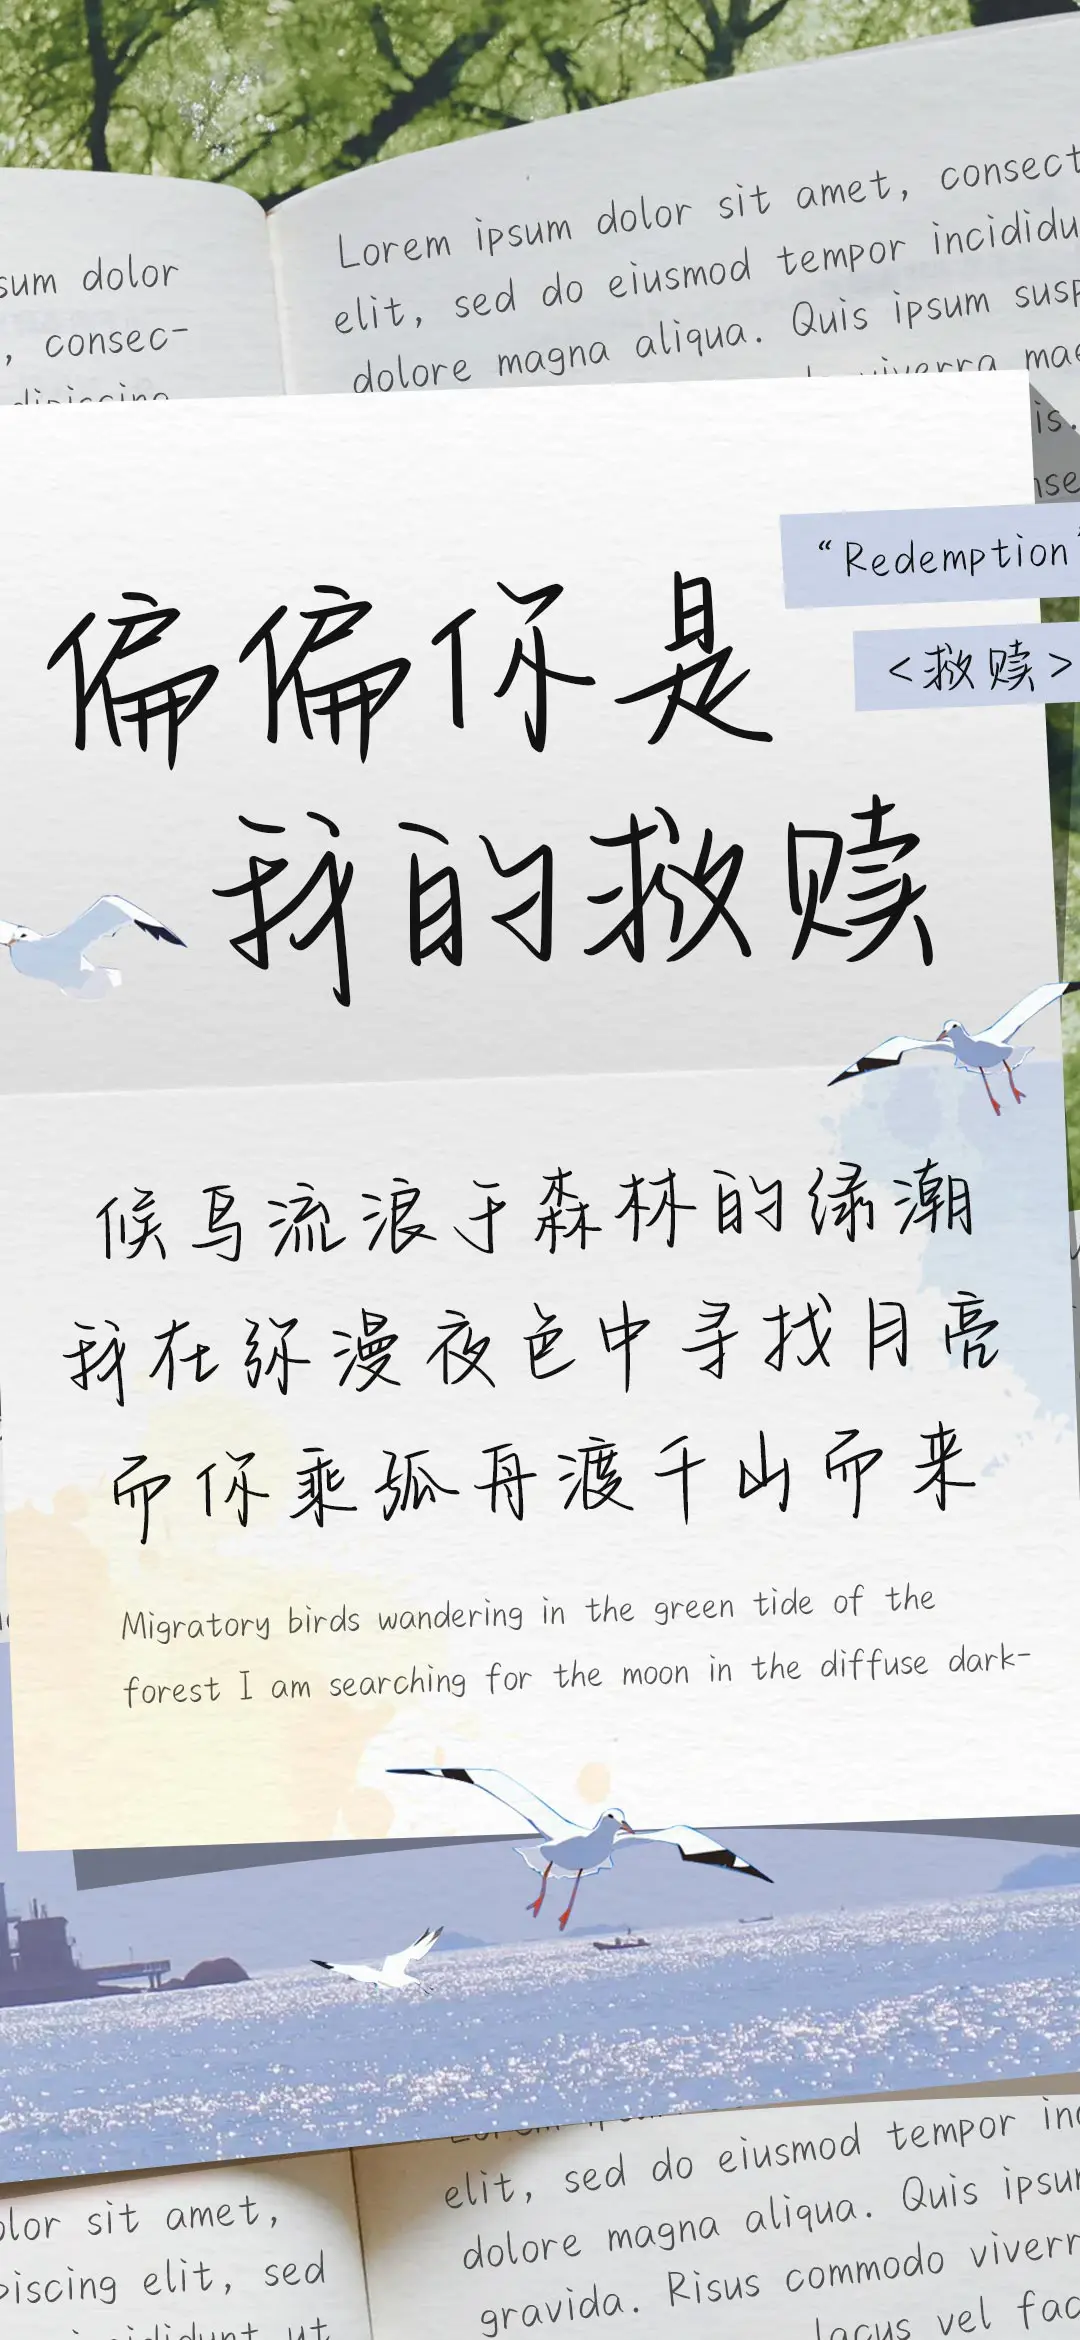 Lorem ipsum dolor sit amet, consect
elit, sed do eiusmod tempor incididu
dolore magna aliqua. Quis ipsum susp
viverra mae
sum dolor
, consec-
dipiscing
is.
nse
“Redemption”
<救赎>
偏偏你是
我的救赎
候鸟流浪于森林的绿潮
我在弥漫夜色中寻找月亮
而你乘孤舟渡千山而来
Migratory birds wandering in the green tide of the
forest I am searching for the moon in the diffuse dark-
elit, sed do eiusmod tempor inc
dolore magna aliqua. Quis ipsu
gravida. Risus commodo viverr
lacus vel fac
olor sit amet,
piscing elit, sed
incididunt ut